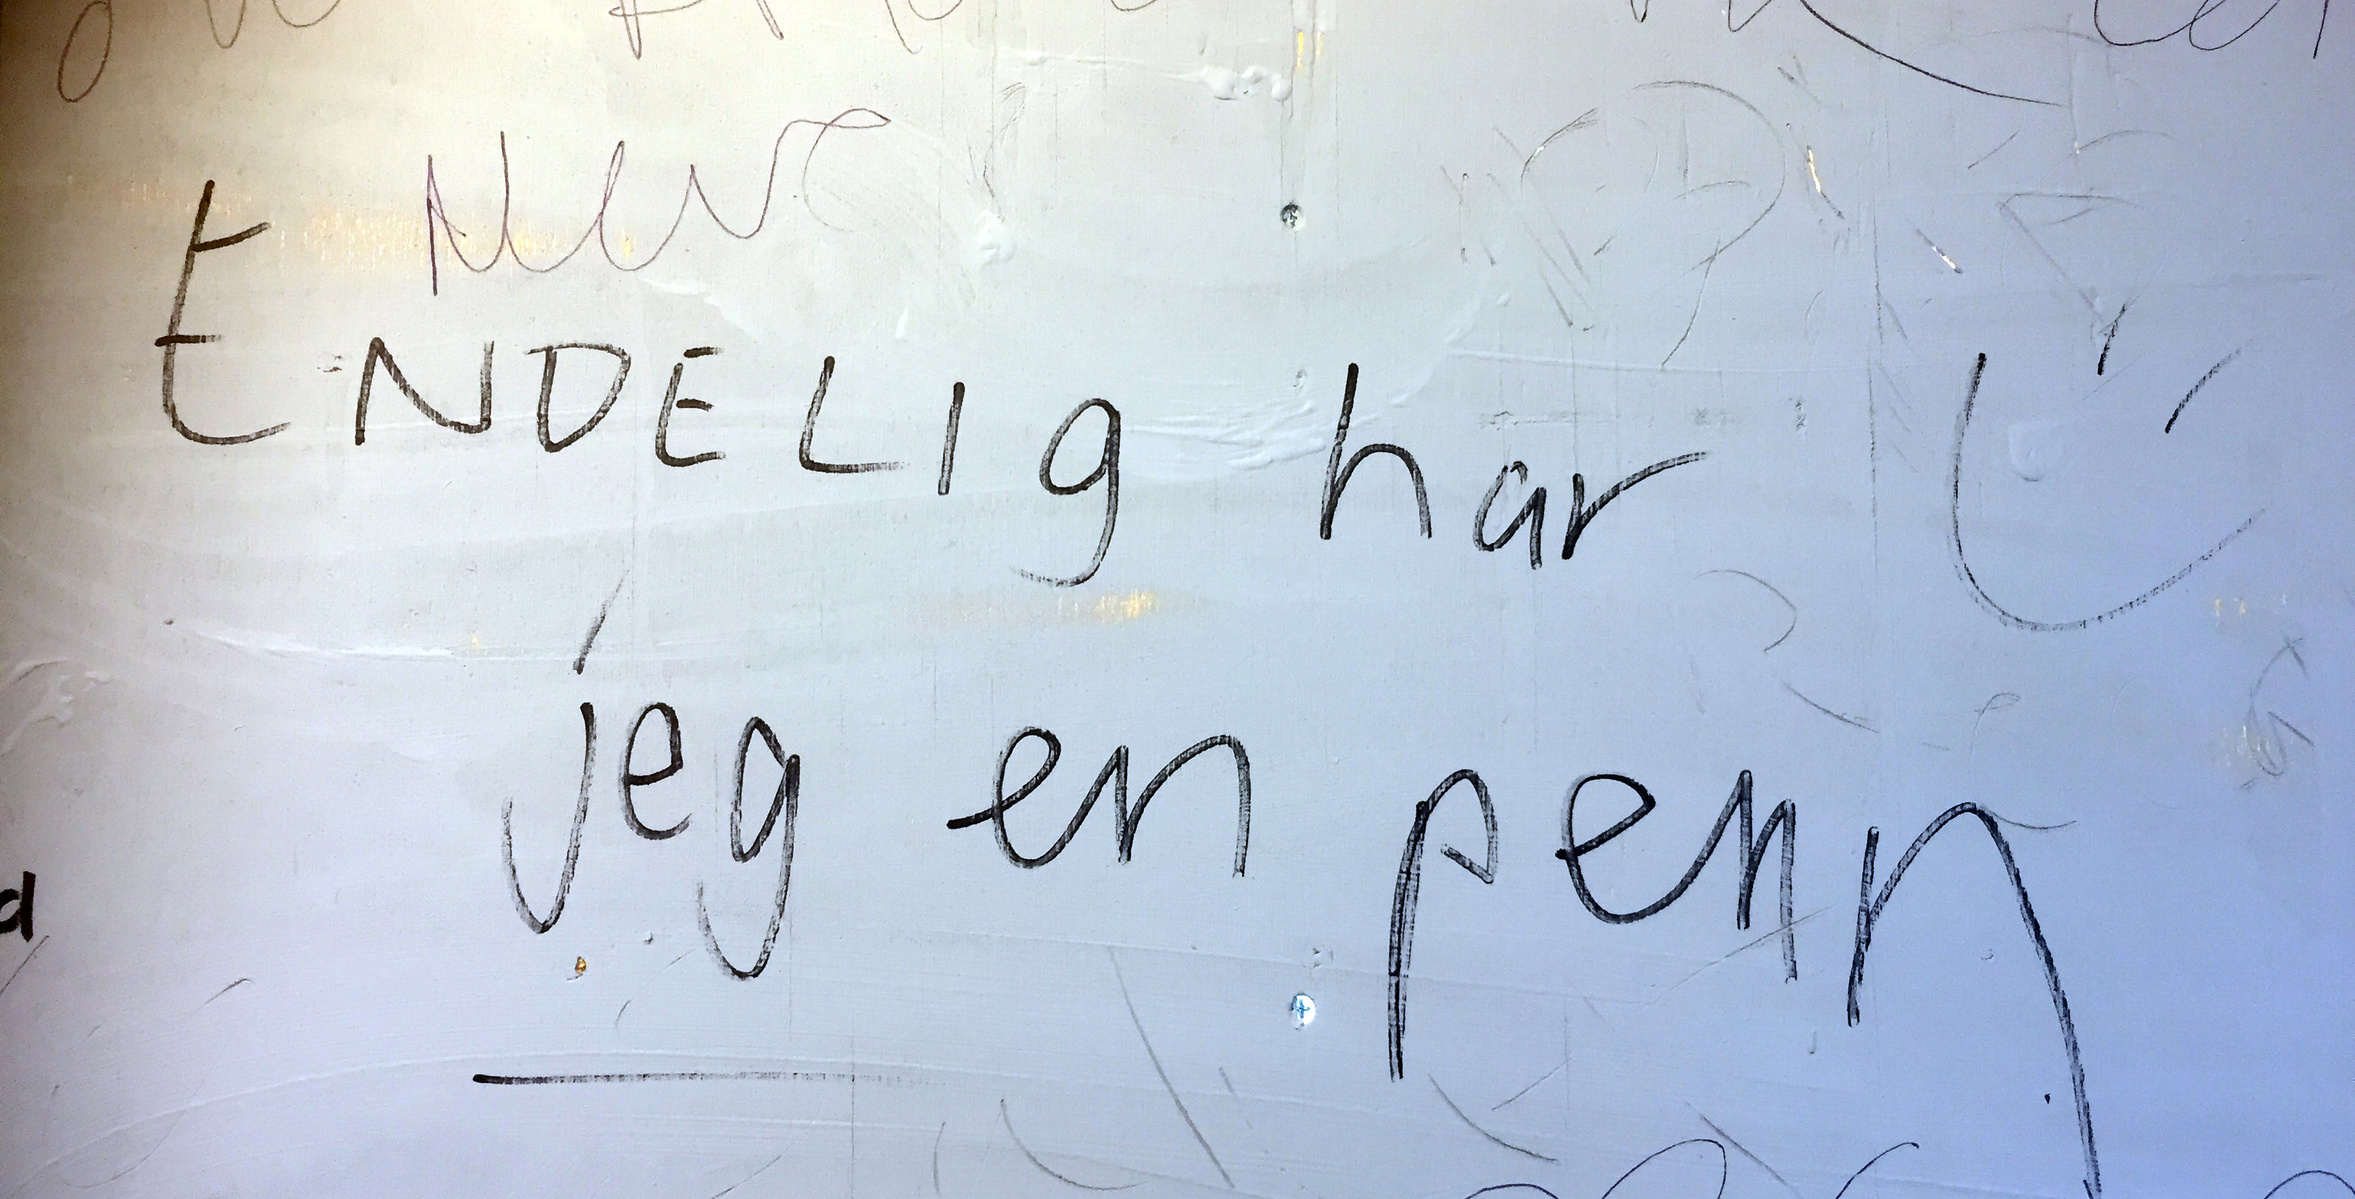 ENDELIg har
jeg en penn
d